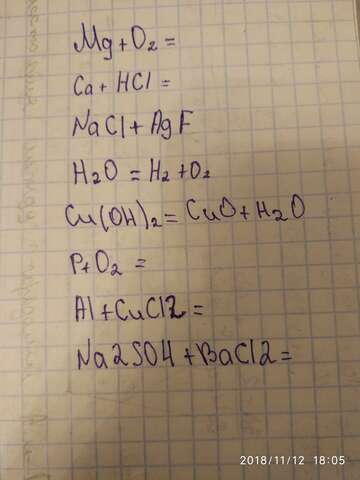 Mg+O2=
Ca+HCl=
NaCl+AgF
H2O=H2+O2
Cu(OH)2=CuO+H2O
P+O2=
Al+CuCl2=
Na2SO4+BaCl2=
2018/11/12 18:05